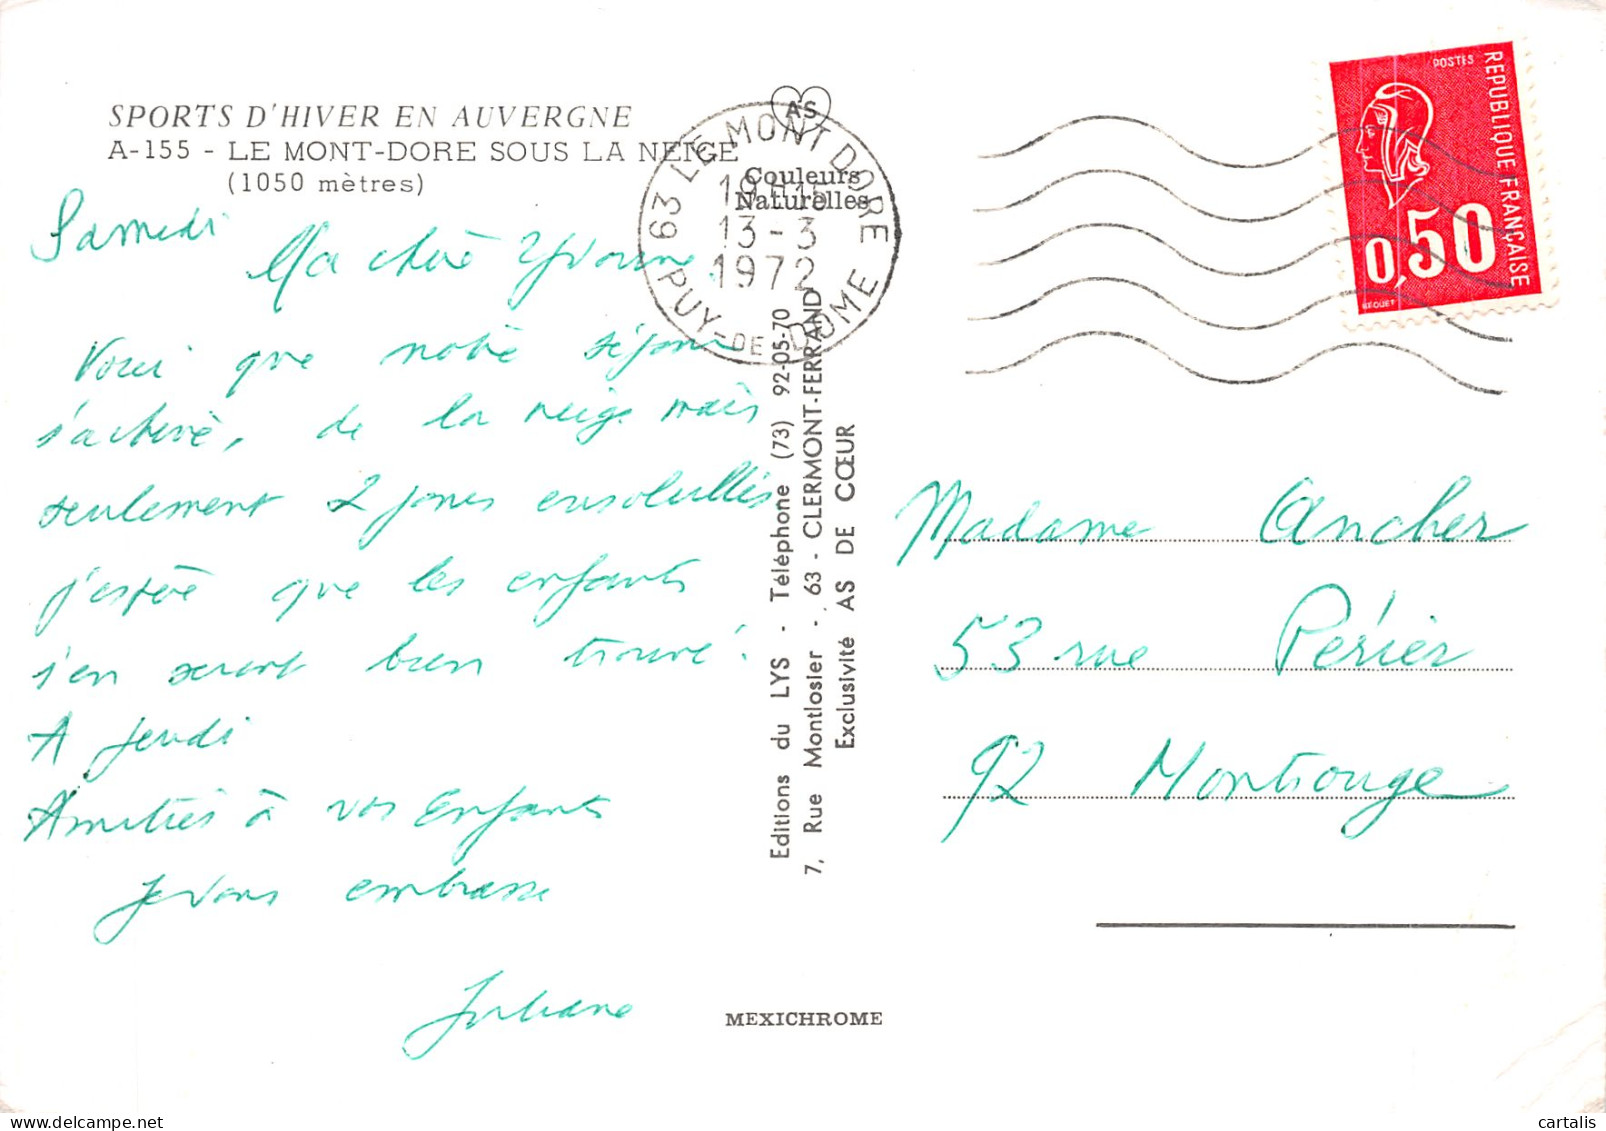 SPORTS D'HIVER EN AUVERGNE
A-155 - LE MONT-DORE SOUS LA NEIGE
(1050 mètres)
AS
Couleurs
Naturelles
63 LE MONT DORE
13-3
1972
PUY-DE-DOME
POSTES
REPUBLIQUE FRANÇAISE
0,50
BEQUET
Samedi
Ma chère Yvonne,
Voici que notre séjour
s'achève, de la neige mais
seulement 2 jours ensoleillés
j'espère que les enfants
s'en seront bien trouvé.
A jeudi
Amitiés à vos Enfants
Je vous embrasse
Juliane
Editions du LYS - Téléphone (73) 92-05-70
7, Rue Montlosier - 63 - CLERMONT-FERRAND
Exclusivité AS DE CŒUR
Madame Ancher
53 rue Périer
92 Montrouge
MEXICHROME
cartalis